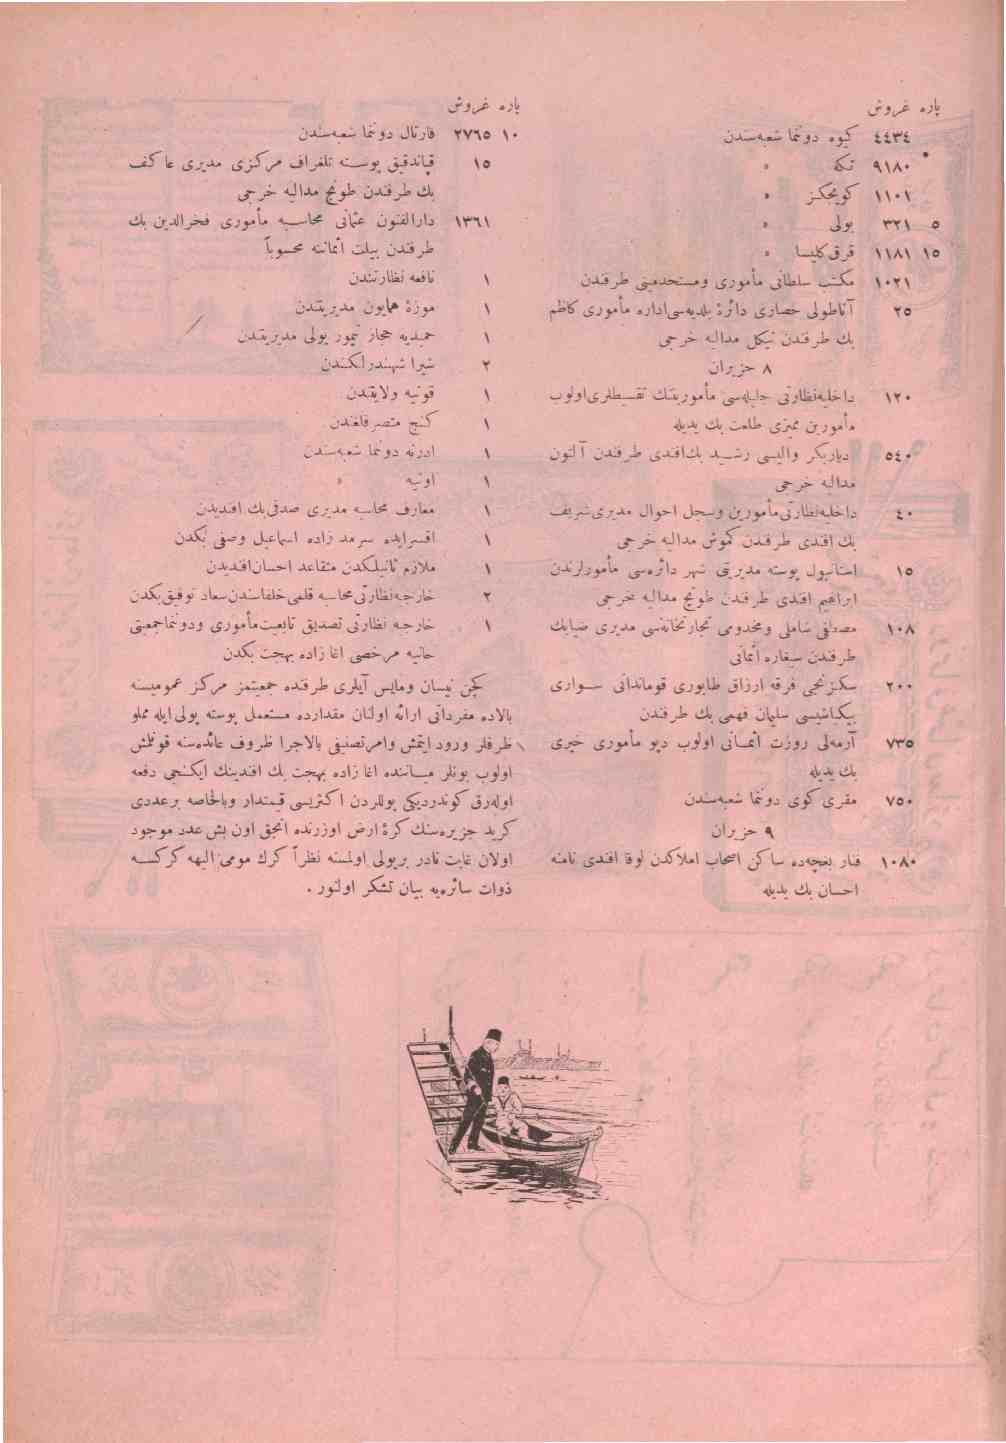 پاره غروش
٤٤٣٤ كیوه دوننما شعبه‌سندن
٩١٨٠ تكه »
١١٠١ كویجكز »
٥ ٣٢١ بولی »
١٥ ١١٨١ قرق‌كلیسا »
١٠٢١ مكتب سلطانی مأموری ومستخدمینی طرفندن
٢٥ آناطولی حصاری دائرهٔ بلدیه‌سی‌اداره مأموری كاظم
بك طرفندن نیكل مدالیه خرجی
٨ حزیران
١٢٠ داخلیه‌نظارتی جلیله‌سی مأمورینك تقسیطلری‌اولوب
مأمورین ممیزی طلعت بك یدیله
٥٤٠ دیاربكر والیسی رشید بك‌افندی طرفندن آلتون
مدالیه خرجی
٤٠ داخلیه‌نظارتی‌مأمورین وسجل احوال مدیری‌شریف
بك افندی طرفندن كموش مدالیه خرجی
١٥ استانبول پوسته مدیریتی شهر دائره‌سی مأمورلرندن
ابراهیم افندی طرفندن طونج مدالیه خرجی
١٠٨ مصطفی شاملی ومخدومی تجارتخانه‌سی مدیری ضیابك
طرفندن سیغاره اثمانی
٢٠٠ سكزنجی فرقه ارزاق طابوری قوماندانی سواری
بیكباشیسی سلیمان فهمی بك طرفندن
٧٣٥ آرمه‌لی روزت اثمانی اولوب دپو مأموری خیری
بك یدیله
٧٥٠ مقری كوی دوننما شعبه‌سندن
٩ حزیران
١٠٨٠ فنار بغچه‌ده ساكن اصحاب املاكدن لوقا افندی نامنه
احسان بك یدیله
پاره غروش
١٠ ٢٧٦٥ قارتال دوننما شعبه‌سندن
١٥ قپاندقیق پوسته تلغراف مركزی مدیری عاكف
بك طرفندن طونج مدالیه خرجی
١٣٦١ دارالفنون عثمانی محاسبه مأموری فخرالدین بك
طرفندن بیلت اثماننه محسوباً
١ نافعه نظارتندن
١ موزهٔ همایون مدیریتندن
١ حمیدیه حجاز تیمور یولی مدیریتندن
٢ شیرا شهبندرلكندن
١ قونیه ولایتندن
١ كنج متصرفلغندن
١ ادرنه دوننما شعبه‌سندن
١ اونیه »
١ معارف محاسبه مدیری صدقی‌بك افندیدن
١ اقسرایده سرمد زاده اسماعیل وصفی بكدن
١ ملازم ثانیلكدن متقاعد احسان‌افندیدن
٢ خارجه‌نظارتی‌محاسبه قلمی‌خلفاسندن‌سعاد توفیق‌بكدن
١ خارجه نظارتی تصدیق تابعیت‌مأموری ودوننماجمعیتی
مرخصی اغا زاده بهجت بكدن
كچن نیسان ومایس آیلری طرفنده جمعیتمز مركز عمومیسنه
بالاده مفرداتی ارائه اولنان مقدارده مستعمل پوسته پولی‌ایله مملو
ظرفلر ورود ایتمش وامرتصنیفی بالاجرا ظروف عائده‌سنه قونلمش
اولوب بونلر میاننده اغا زاده بهجت بك افندینك ایكنجی دفعه
اوله‌رق كوندردیكی پوللردن اكثریسی قیمتدار وبالخاصه برعددی
كرید جزیره‌سنك كرهٔ ارض اوزرنده انجق اون بش عدد موجود
اولان غایت نادر برپولی اولمسنه نظراً كرك مومی الیهه كركسه
ذوات سائره‌یه بیان تشكر اولنور .